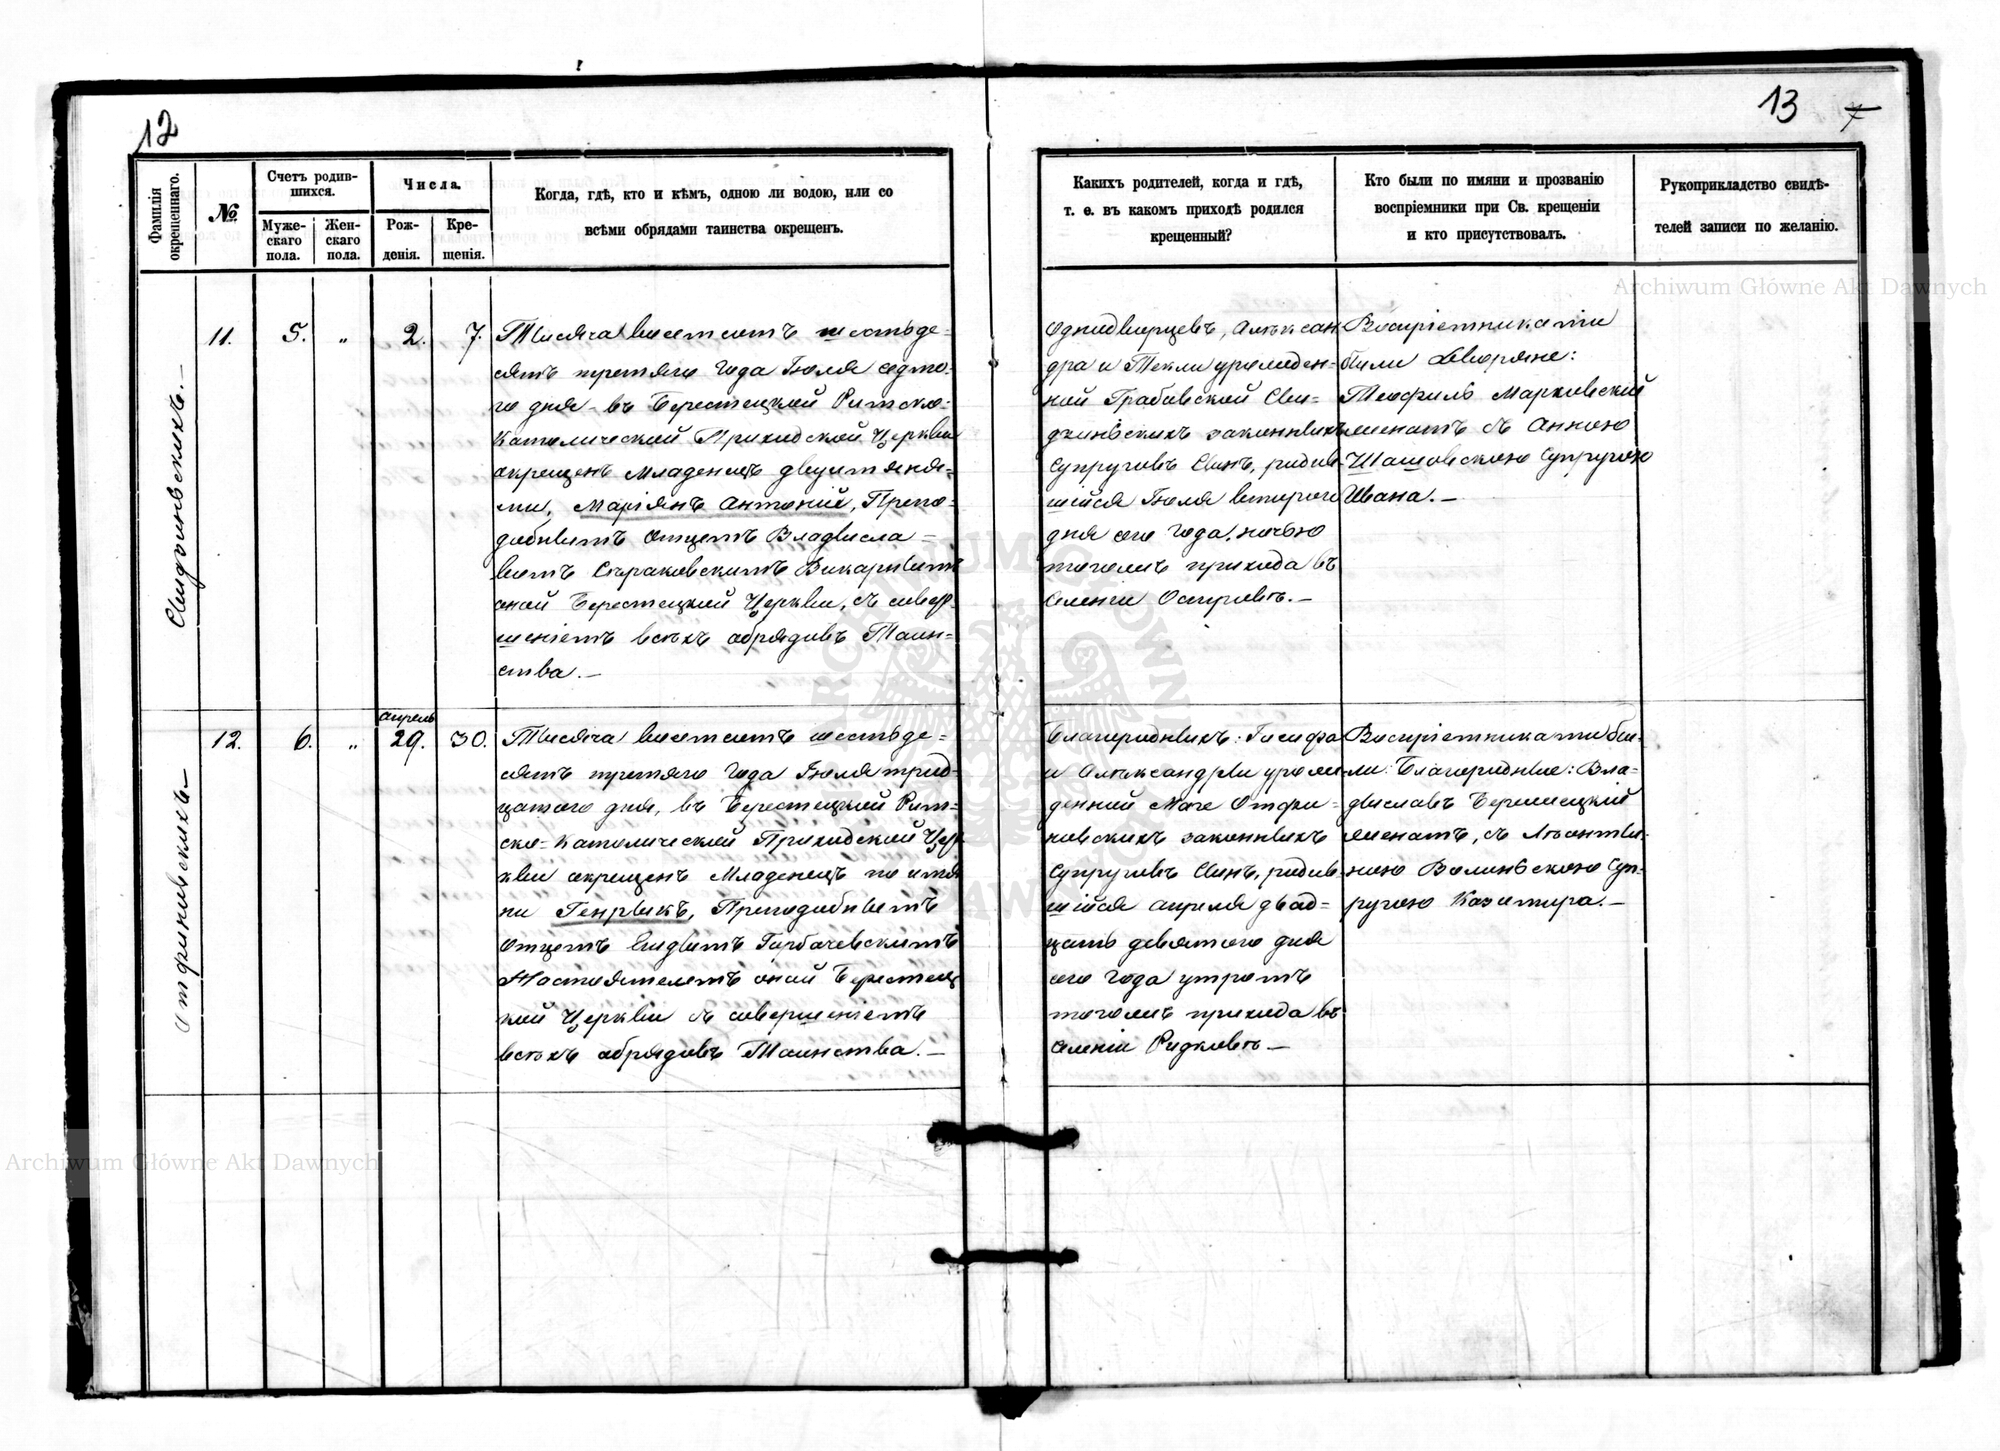 12
13
Фамилія окрещеннаго.
№
Счетъ родив-
шихся.
Муже-
скаго
пола.
Жен-
скаго
пола.
Числа.
Рож-
денія.
Кре-
щенія.
Когда, гдѣ, кто и кѣмъ, одною ли водою, или со
всѣми обрядами таинства окрещенъ.
Каких​ъ родителей, когда и гдѣ,
т. е. въ какомъ приходѣ родился
крещенный?
Кто были по имяни и прозванію
воспріемники при Св. крещеніи
и кто присутствовалъ.
Рукоприкладство свидѣ-
телей записи по желанію.
11.
5.
„
2.
7.
Тысяча восемсотъ шестьде-
сятъ третяго года Іюля седмо-
го дня въ Берестецкой Римско-
Католической Приходской Церкви
окрещенъ Младенецъ двуимяна-
ми, Маріянъ Антоній, Препо-
добнымъ Отцемъ Владисла-
вомъ Викарнымъ
оной Берестецкой Церкви, съ совер-
шеніемъ всѣхъ обрядовъ Таин-
ства.—
Однодворцевъ, Алексан-
дра и Текли урожден-
ной Грабовской Сви-
законныхъ
Супруговъ Сынъ, родив-
шійся Іюля второго
дня сего года, ночью
тогожъ прихода въ
селеніи Островъ.—
Воспріемниками
были Дворяне:
Теофиль Марковскій
съ Анною
Шашовскою Супругою
Ивана.—
12.
6.
„
апрель
29.
30.
Тысяча восемсотъ шестьде-
сятъ третяго года Іюля трид-
цатого дня, въ Берестецкой Рим-
ско-Католической Приходской Цер-
кви окрещенъ Младенецъ по имя-
ни Генрыкъ, Преподобнымъ
Отцемъ Горбачевскимъ
Настоятелемъ оной Берестец-
кой Церкви съ совершеніемъ
всѣхъ обрядовъ Таинства.—
Благородныхъ: Іосифа
и Александры урож-
денной
законныхъ
Супруговъ Сынъ, родив-
шійся апреля двад-
цать девятого дня
сего года утромъ
тогожъ прихода въ
селеніи Ридковъ—
Воспріемниками бы-
ли: Благородные: Вла-
диславъ
съ
Волинскою Суп-
ругою Казимира.—
Archiwum Główne Akt Dawnych
Archiwum Główne Akt Dawnych